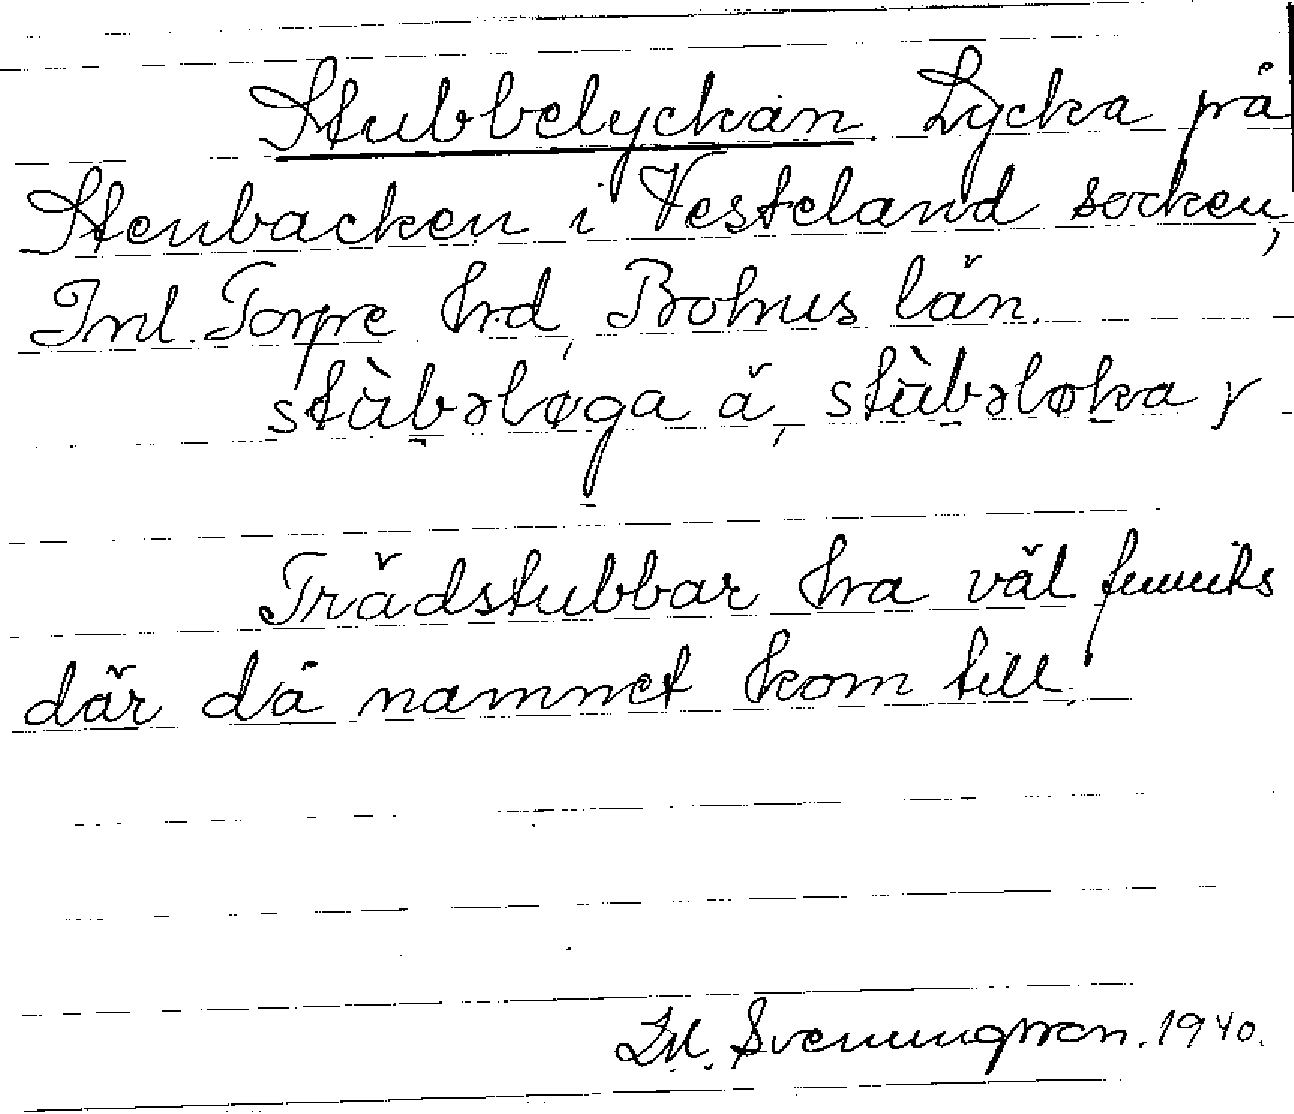 Stubbelyckan. Lycka på
Stenbacken i Vesteland socken,
Inl. Torpe hrd, Bohus län.
stùbəløga ä, stùbəløka y
Trädstubbar ha väl funnits
där då namnet kom till.
Svenungsson. 1940.